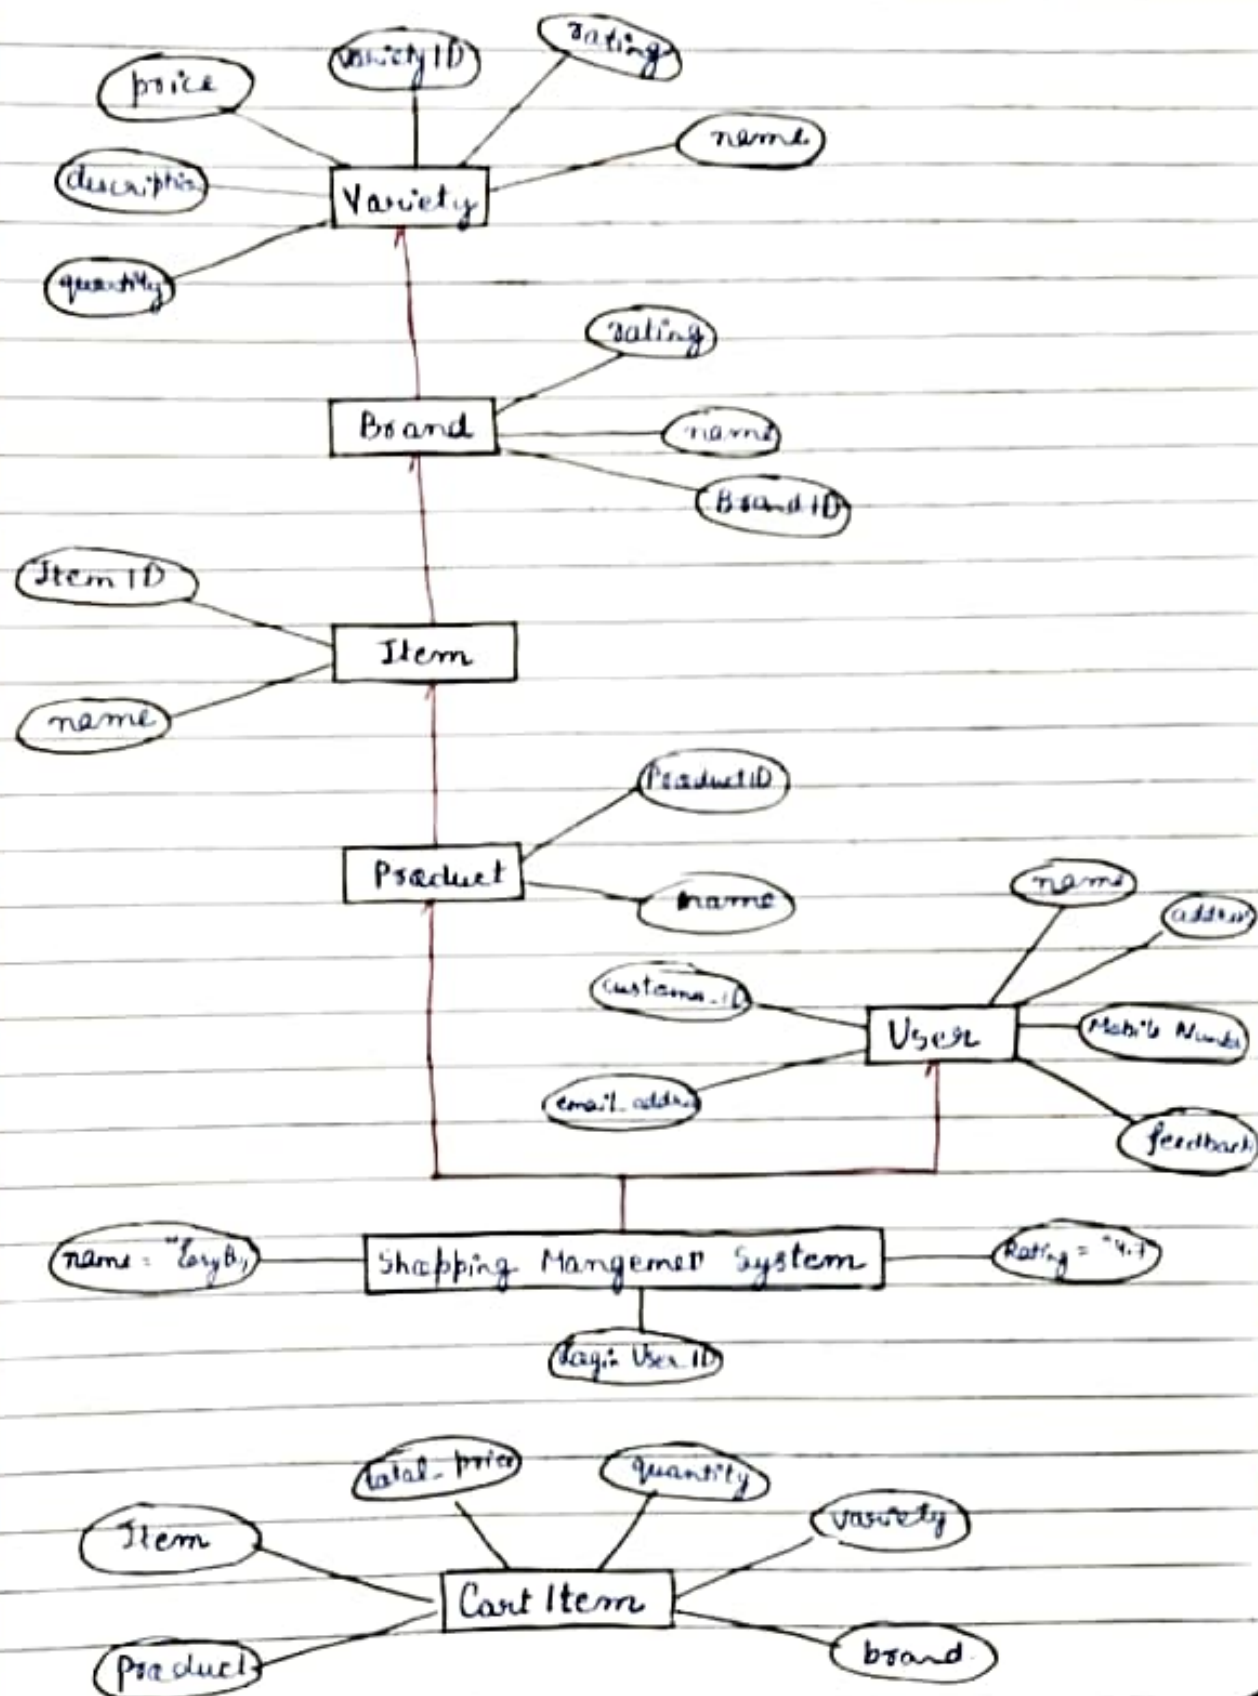 rating
variety ID
price
name
description
Variety
quantity
rating
Brand
name
Brand ID
Item ID
Item
name
Product ID
Product
name
name
address
customer_ID
User
Mobile Number
email_addre
feedback
name = "EasyB
Shopping Mangemer System
Rating = "4.7
Login User ID
total_price
quantity
Item
variety
Cart Item
product
brand